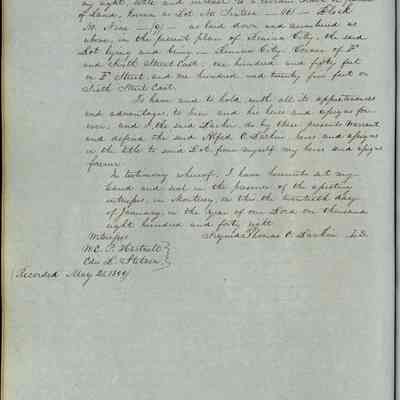 my right, title and interest to a certain
of Land, known as Lot No Sixteen — 16 — Block
No Nine — 9 — as laid down and numbered as
above, in the present plan of Benicia City, the said
Lot lying and being in Benicia City. Corner of F
and Sixth Street East. one hundred and fifty feet
on F Street, and one hundred and twenty five feet on
Sixth Street East.
To have and to hold with all its appurtenances
and advantages, to him and his heirs and assigns for
ever, and I the said Larkin do by these presents Warrant
and defend the said Alfred O. Larkin heirs and assigns
in the title to said Lot from myself my heirs and assigns
forever.
In testimony whereof, I have hereunto set my
hand and seal in the presence of the
witnesses, in Monterey, on this the twentieth day
of January, in the Year of our Lord on thousand
eight hundred and forty eight
Witnesses Signed Thomas O. Larkin L.S.
W. E. P. Hartnell
(Recorded May 21